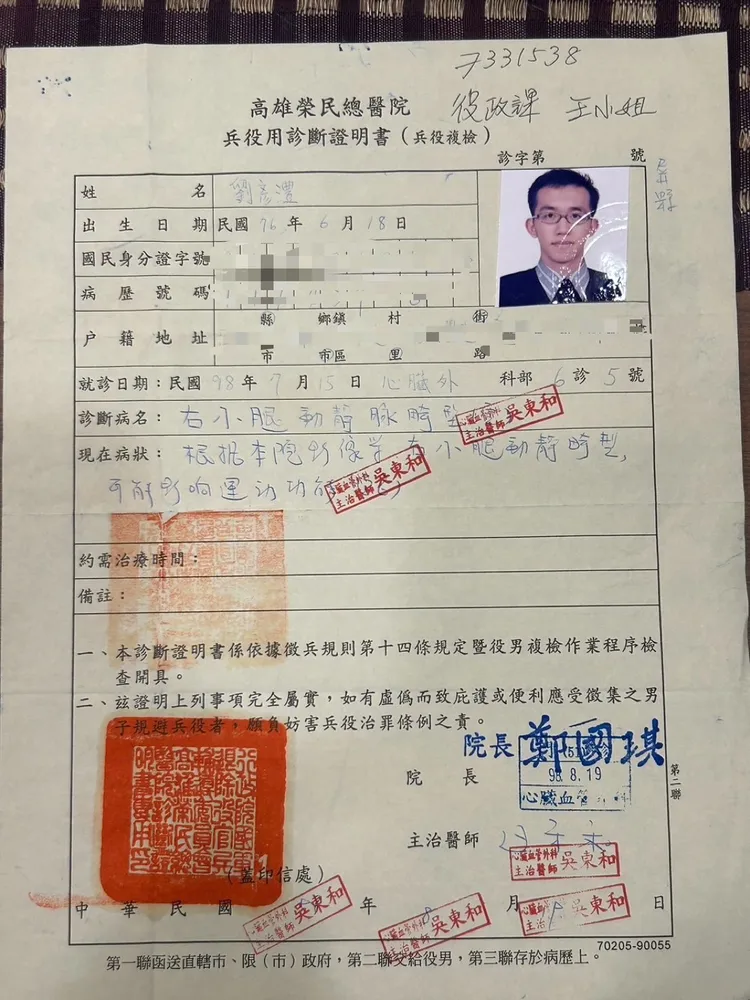 7331538
役政課 王小姐
高雄榮民總醫院
兵役用診斷證明書（兵役複檢）
診字第 號
屏縣
姓 名 劉彥澧
出生日期 民國 76 年 6 月 18 日
國民身分證字號
病歷號碼
戶籍地址 縣 鄉鎮 村 街
市 市區 里 路
就診日期：民國 98 年 7 月 15 日 心臟外 科部 6 診 5 號
診斷病名：右小腿動靜脈畸型
心臟血管外科 主治醫師 吳東和
現在病狀：根據本院影像學 右小腿動靜畸型,
心臟血管外科 主治醫師 吳東和
可能影响運动功能
約需治療時間：
備註：
一、本診斷證明書係依據徵兵規則第十四條規定暨役男複檢作業程序檢
查開具。
二、玆證明上列事項完全屬實，如有虛僞而致庇護或便利應受徵集之男
子規避兵役者，願負妨害兵役治罪條例之責。
院長 鄭國琪
院 長
98.8.19
心臟血管
第二聯
主治醫師
心臟血管外科 主治醫師 吳東和
（蓋印信處）
中華民國 年 8 月 日
心臟血管外科 主治醫師 吳東和
心臟血管外科 主治醫師 吳東和
主治醫師 吳東和
70205-90055
第一聯函送直轄市、縣（市）政府，第二聯交給役男，第三聯存於病歷上。